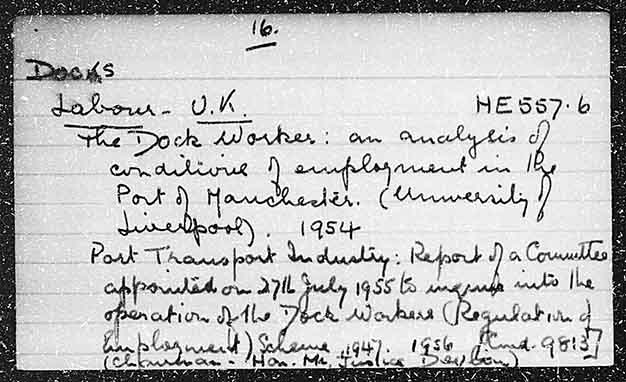 16.
Docks
Labour - U.K. HE557.6
The Dock Worker: an analysis of
conditions of employment in the
Port of Manchester. (University of
Liverpool). 1954
Port Transport Industry: Report of a Committee
appointed on 27th July 1955 to inquire into the
operation of the Dock Workers (Regulation of
Employment) Scheme 1947. 1956 [Cmd. 9813]
(Chairman - Hon. Mr. Justice Devlin)